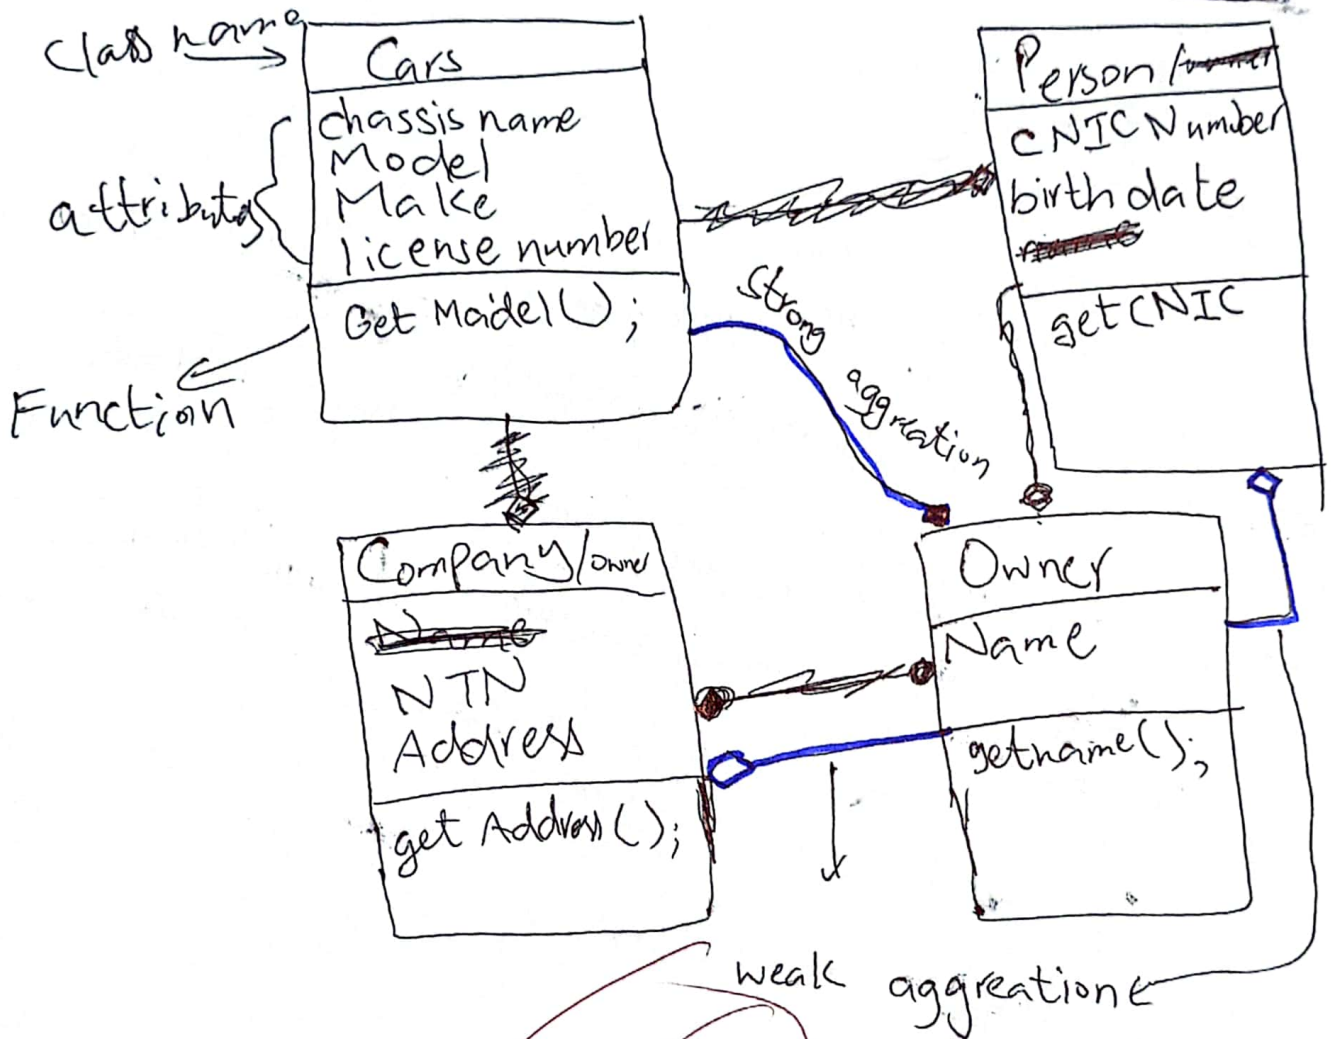 Class name
Cars
chassis name
Model
Make
license number
attributes
Get Maidel();
Function
Person/
CNIC Number
birth date
getCNIC
Strong
aggreation
Company/owner
Name
NTN
Address
get Address();
Owner
Name
getname();
weak aggreation